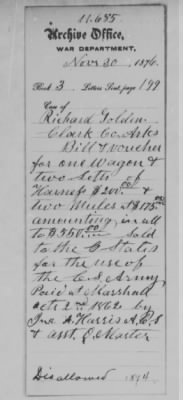 11.685
Archive Office,
WAR DEPARTMENT,
Novr 30, 1876.
Book 3 Letters Sent, page 199
Case of
Richard Goldin
Clark Co. Arks
Bill & voucher
for one Wagon &
two Setts of
Harness $201.00 &
two Mules at $175.00
amounting, in all
to $550.00 Sold
to the C States
for the use of
the C.S. Army,
Paid at Marshall
Octr 2nd 1862 by
Jno A. Harris A.C.S
& asst. Q. Master
Disallowed 1874